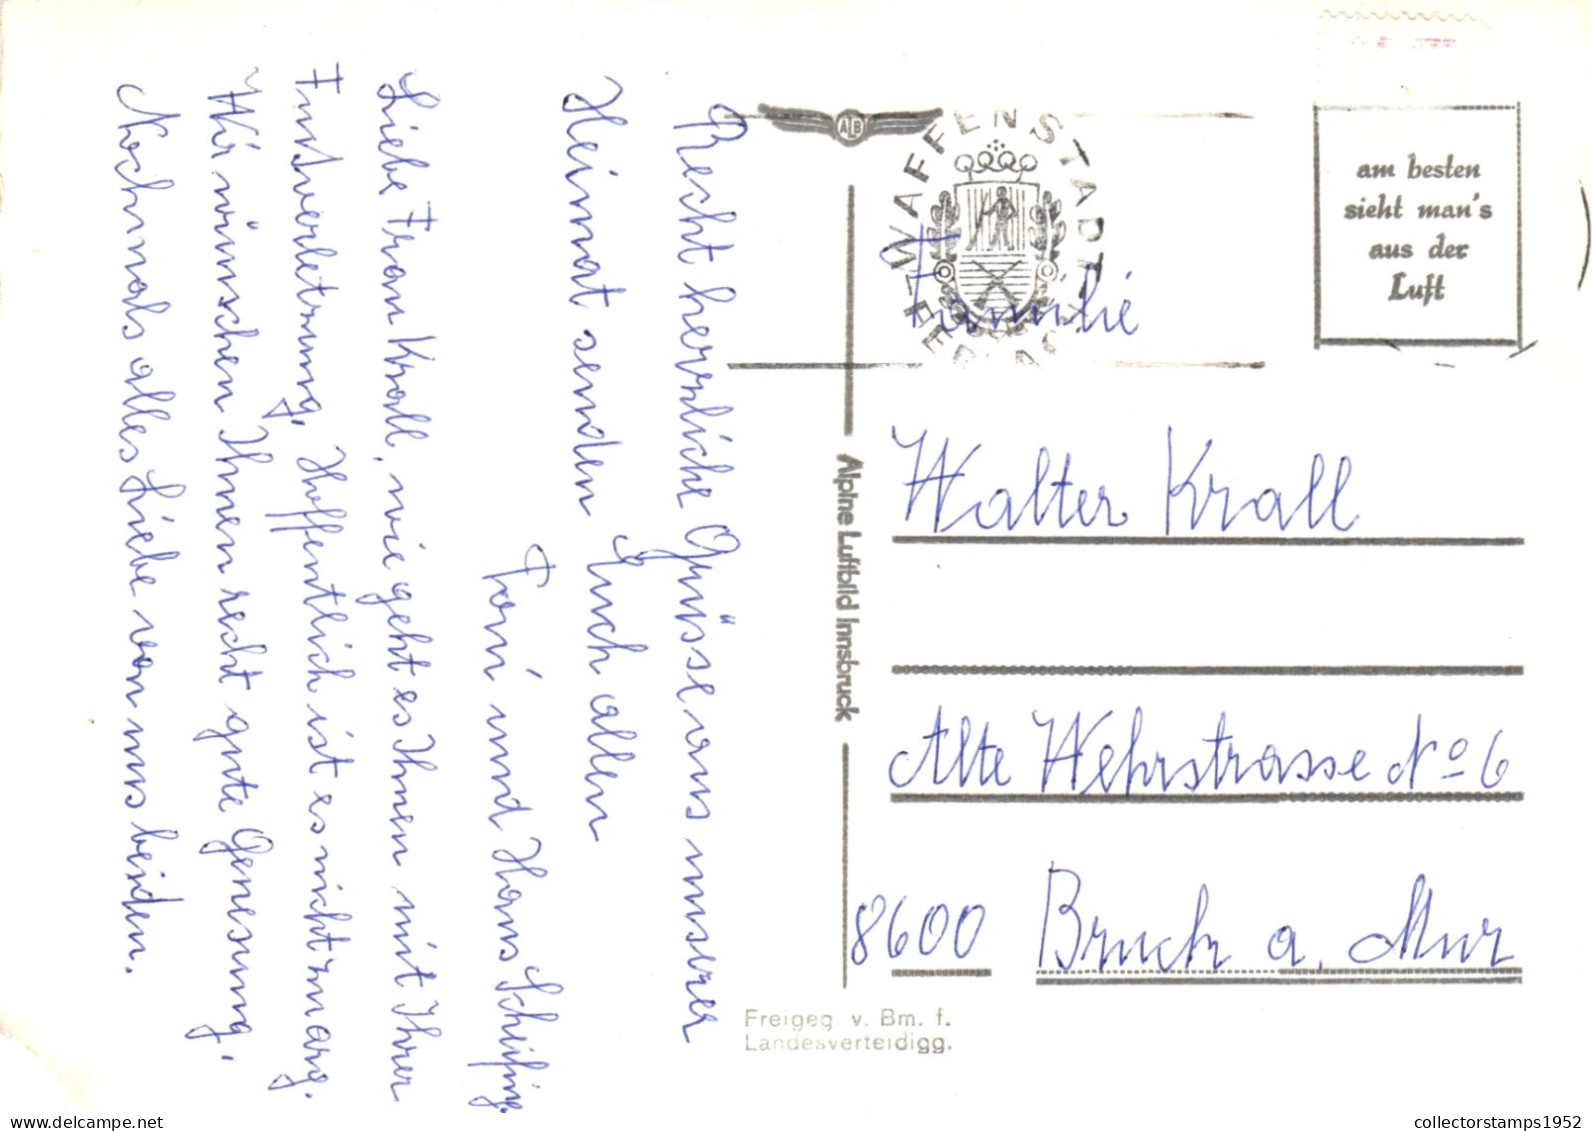 Recht herzliche Grüsse aus unserer
Heimat senden Euch allen
Toni und Hans
Liebe Frau Krall, wie geht es Ihnen mit Ihrer
Fussverletzung, Hoffentlich ist es nicht zu arg.
Wir wünschen Ihnen recht gute Genesung,
Nochmals alles Liebe von uns beiden.
ALB
WAFFENSTADT FERLACH
Alpine Luftbild Innsbruck
Freigeg. v. Bm. f.
Landesverteidigg.
am besten
sieht man's
aus der
Luft
Familie
Walter Krall
Alte Wehrstrasse No 6
8600 Bruck a. Mur
collectorstamps1952